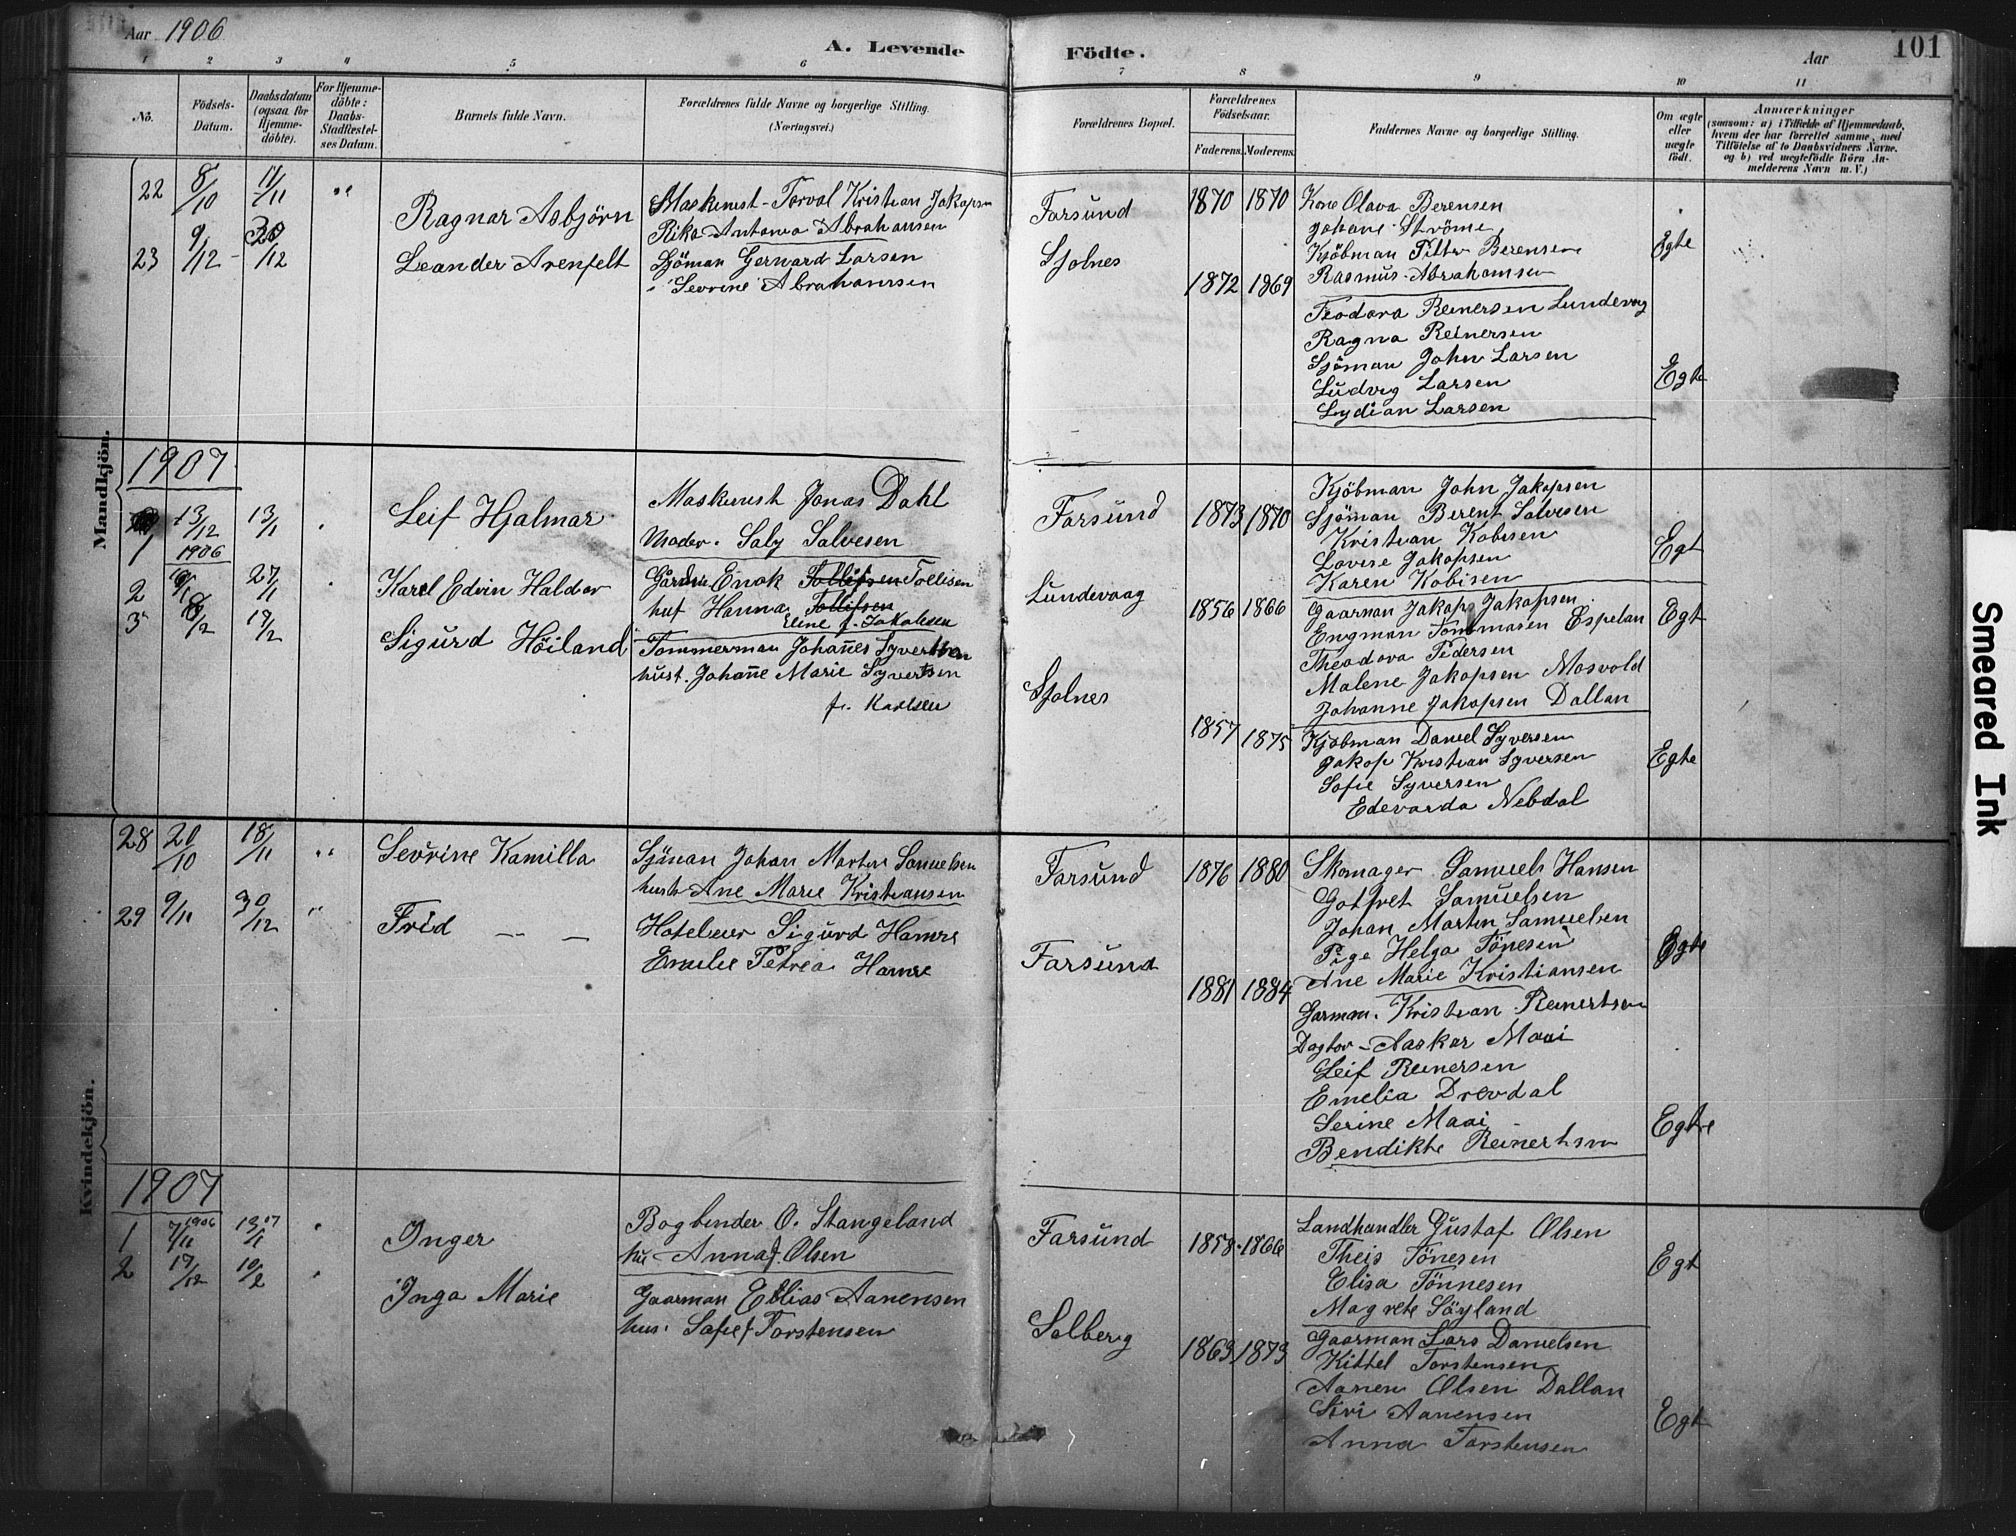 Aar 1906
A. Levende Födte.
Aar
101
1 2 3 4 5 6 7 8 9 10 11
No.
Födsels-Datum.
Daabsdatum (ogsaa for Hjemme-döbte).
For Hjemme-döbte: Daabs-Stadfæstel-ses Datum.
Barnets fulde Navn.
Forældrenes fulde Navne og borgerlige Stilling.
(Næringsvei.)
Forældrenes Bopæl.
Forældrenes Födselsaar.
Faderens. Moderens.
Faddernes Navne og borgerlige Stilling.
Om ægte eller uægte födt.
Anmærkninger
(saasom: a) i Tilfælde af Hjemmedaab, hvem der har forrettet samme, med Tilföielse af to Daabsvidners Navne. og b) ved uægtefödte Börn An-melderens Navn m. V.)
Mandkjön.
22 8/10 11/11 " Ragnar Asbjörn
Maskinist - Torval Kristian Jakopsen
Rika Antonia Abrahansen
Farsund
1870 1870
Kone Olava Berensen
Johane Ströme
Kjöbman Petter Berensen
Rasmus Abrahamsen
Egte
23 9/12 - 30/12 Leander Arenfelt
Sjöman Gerward Larsen
" Sevrine Abrahamsen
Sjolnes
1872 1869
Teodora Reinersen Lundevog
Ragna Reinersen
Sjöman John Larsen
Ludvig Larsen
Lydian Larsen
Egte
1907
1 13/12 1906 13/1 Leif Hjalmar
Maskinist Jonas Dahl
Moder. Saly Salvesen
Farsund
1873 1870
Kjöbman John Jakopsen
Sjöman Berent Salvesen
Kristian Kobisen
Lovise Jakopsen
Karen Kobisen
Egt
2 27/1 Karel Edvin Haldor
Enok Tollifsen Tollisen
huf Hanna Tollifsen
Eline f. Jakobsen
Lundevaag
1856 1866
Gaarman Jakop Jakopsen
Engman Tommasen Espelan
Theodora Pedersen
Malene Jakopsen Mosvold
Johanne Jakopsen Dallan
Egt
3 8/12 17/2 Sigurd Höiland
Tommerman Johanes Syvertsen
hust. Johane Marie Syvertsen
f. Karlsen
Sjolnes
1857 1875
Kjöbman Daniel Syversen
Jakop Kristian Syversen
Sofie Syversen
Edevarda Nebdal
Egte
Kvindekjön.
28 20/10 18/11 " Sevrine Kamilla
Sjöman Johan Martin Samuelsen
hust. Ane Marie Kristiansen
Farsund
1876 1880
Skomager Samuels Hansen
Gotfret Samuelsen
Johan Martin Samuelsen
Pige Helga Tönesen
Ane Marie Kristiansen
Egte
29 9/11 30/12 " Frid — —
Hoteleier Sigurd Hamre
Emelie Petrea Hamre
Farsund
1881 1884
Garman. Kristian Reinertsen
Dogtor - Aaskar Maai
Leif Reinersen
Emelia Drevdal
Serine Maai
Bendikte Reinertsen
Egte
1907
1 7/11 1906 13/1 07 Inger
Bogbinder O. Stangeland
hu - Anna f. Olsen
Farsund
1858 1866
Landhandler Gustaf Olsen
Theis Tönesen
Elisa Tönnesen
Magrete Söyland
Egt
2 17/12 10/2 Inga Marie
Gaarman Ellias Aanensen
hus. Safie f. Torstensen
Solberg
1863 1873
Gaarman Lars Danielsen
Kittel Torstensen
Aanen Olsen Dallan
Siri Aanensen
Anna Torstensen
Egt
Smeared Ink